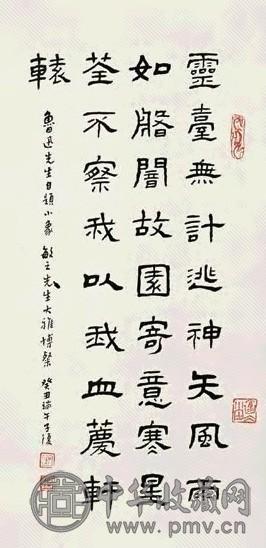 靈臺無計逃神矢風雨
如磐闇故園寄意寒星
荃不察我以我血薦軒
轅
魯迅先生自題小象 敏之先生大雅博粲 癸丑端午子復
中华收藏网
www.pmv.cn